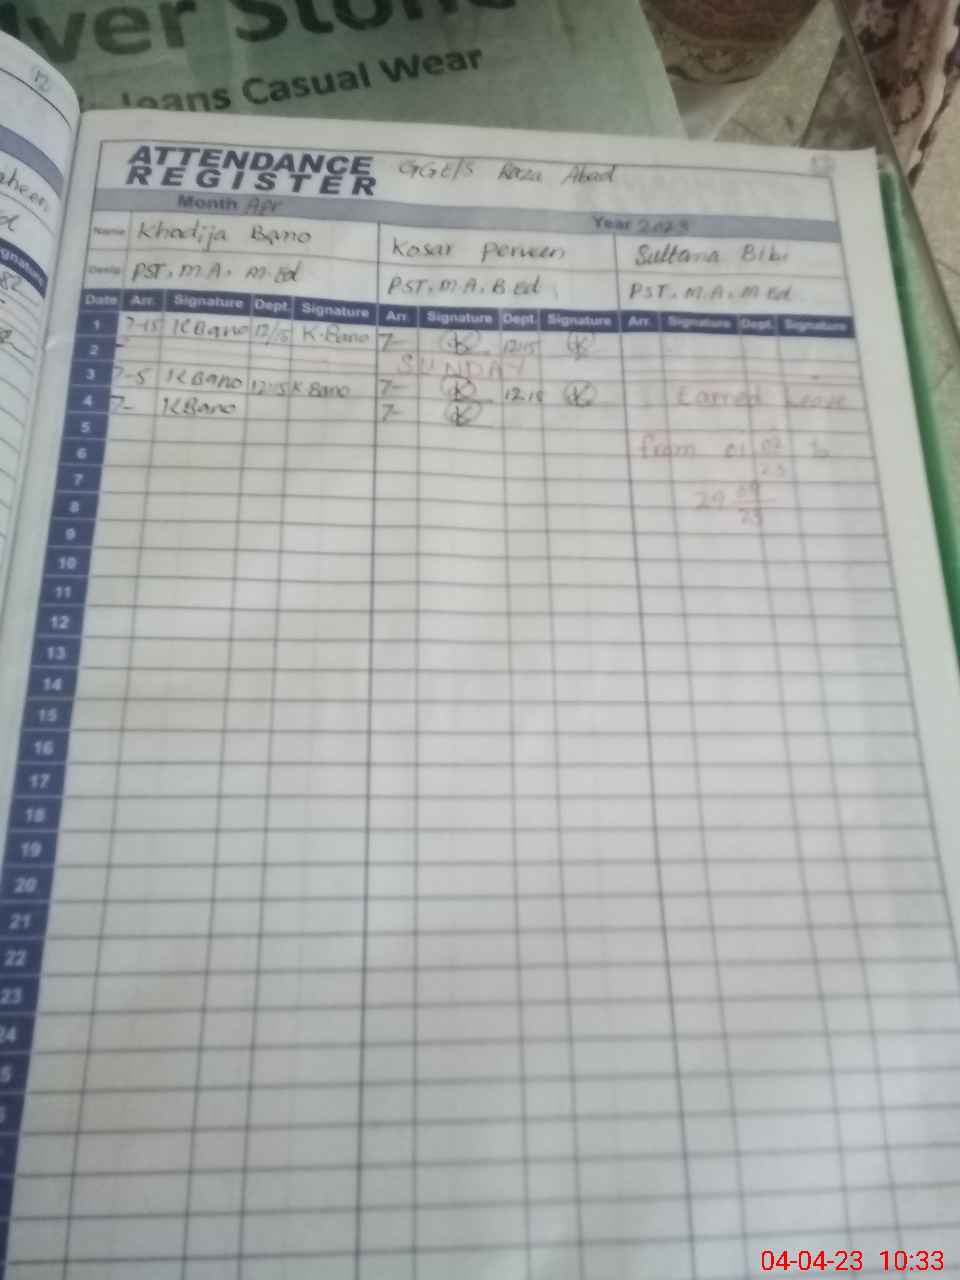 ver Stone
Jeans Casual Wear
ATTENDANCE
REGISTER
GGE/S Raza Abad
Month Apr Year 2023
Name Khadija Bano Kosar Perveen Sultana Bibi
PST, M.A, M.Ed PST, M.A, B.Ed PST, M.A, M.Ed
Date Arr. Signature Dept. Signature Arr. Signature Dept. Signature Arr. Signature Dept. Signature
1 7-15 KBano 12/15 K.Bano 7- K 12:15 K
2 SUNDAY
3 7-5 KBano 12:15 K Bano 7- K 12.15 K Earned Leave
4 7- KBano 7- K
5
6 from 01
7
8 29
9
10
11
12
13
14
15
16
17
18
19
20
21
22
23
24
04-04-23 10:33